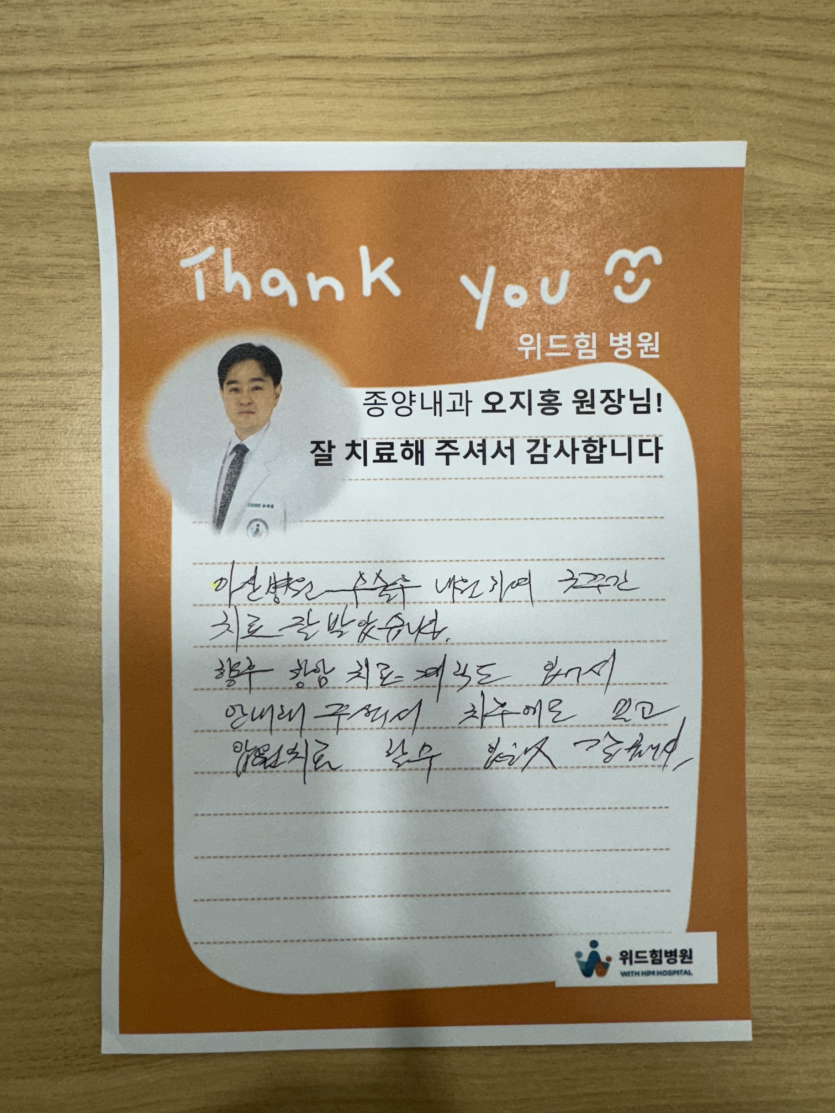 Thank you
위드힘 병원
종양내과 오지홍 원장님!
잘 치료해 주셔서 감사합니다
아산병원 수술후 내원하여
치료 잘 받았습니다.
향후 항암 치료 계획도 있어서
안내해 주셔서 외주에도 오고
입원치료 할수
위드힘병원
WITH HIM HOSPITAL